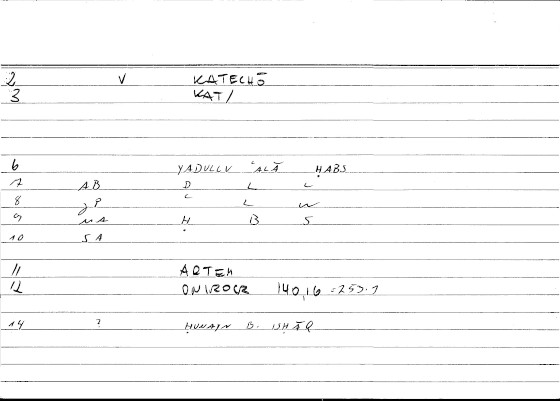 2 V KATECHŌ
3 KAT/
6 YADULLU ʿALĀ ḤABS
7 AB D L L
8 P ʿ L W
9 MA Ḥ B S
10 SA
11 ARTEM
12 ONIROCR 140,16 =253.7
14 ? ḤUNAYN B. ISḤĀQ